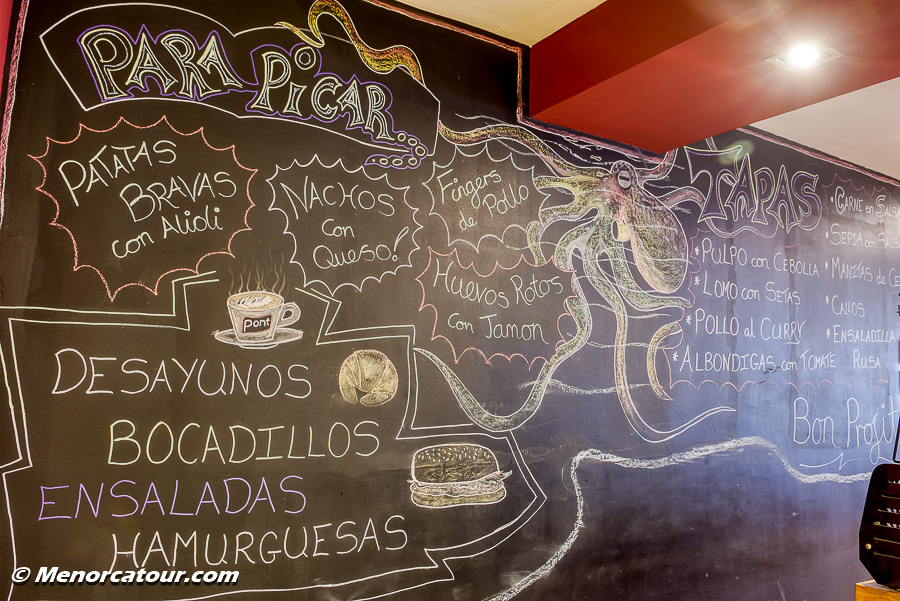 PARA PICAR
PATATAS
BRAVAS
con Alioli
NACHOS
con
Queso!
Fingers
de Pollo
HUEVOS ROTOS
con JAMON
TAPAS
* PULPO con CEBOLLA
* LOMO con SETAS
* POLLO al CURRY
* ALBONDIGAS con TOMATE
* CARNE en
* SEPIA en
* MANITAS de
* CALLOS
* ENSALADILLA
RUSA
Bon Profit
Pont
DESAYUNOS
BOCADILLOS
ENSALADAS
HAMURGUESAS
© Menorcatour.com